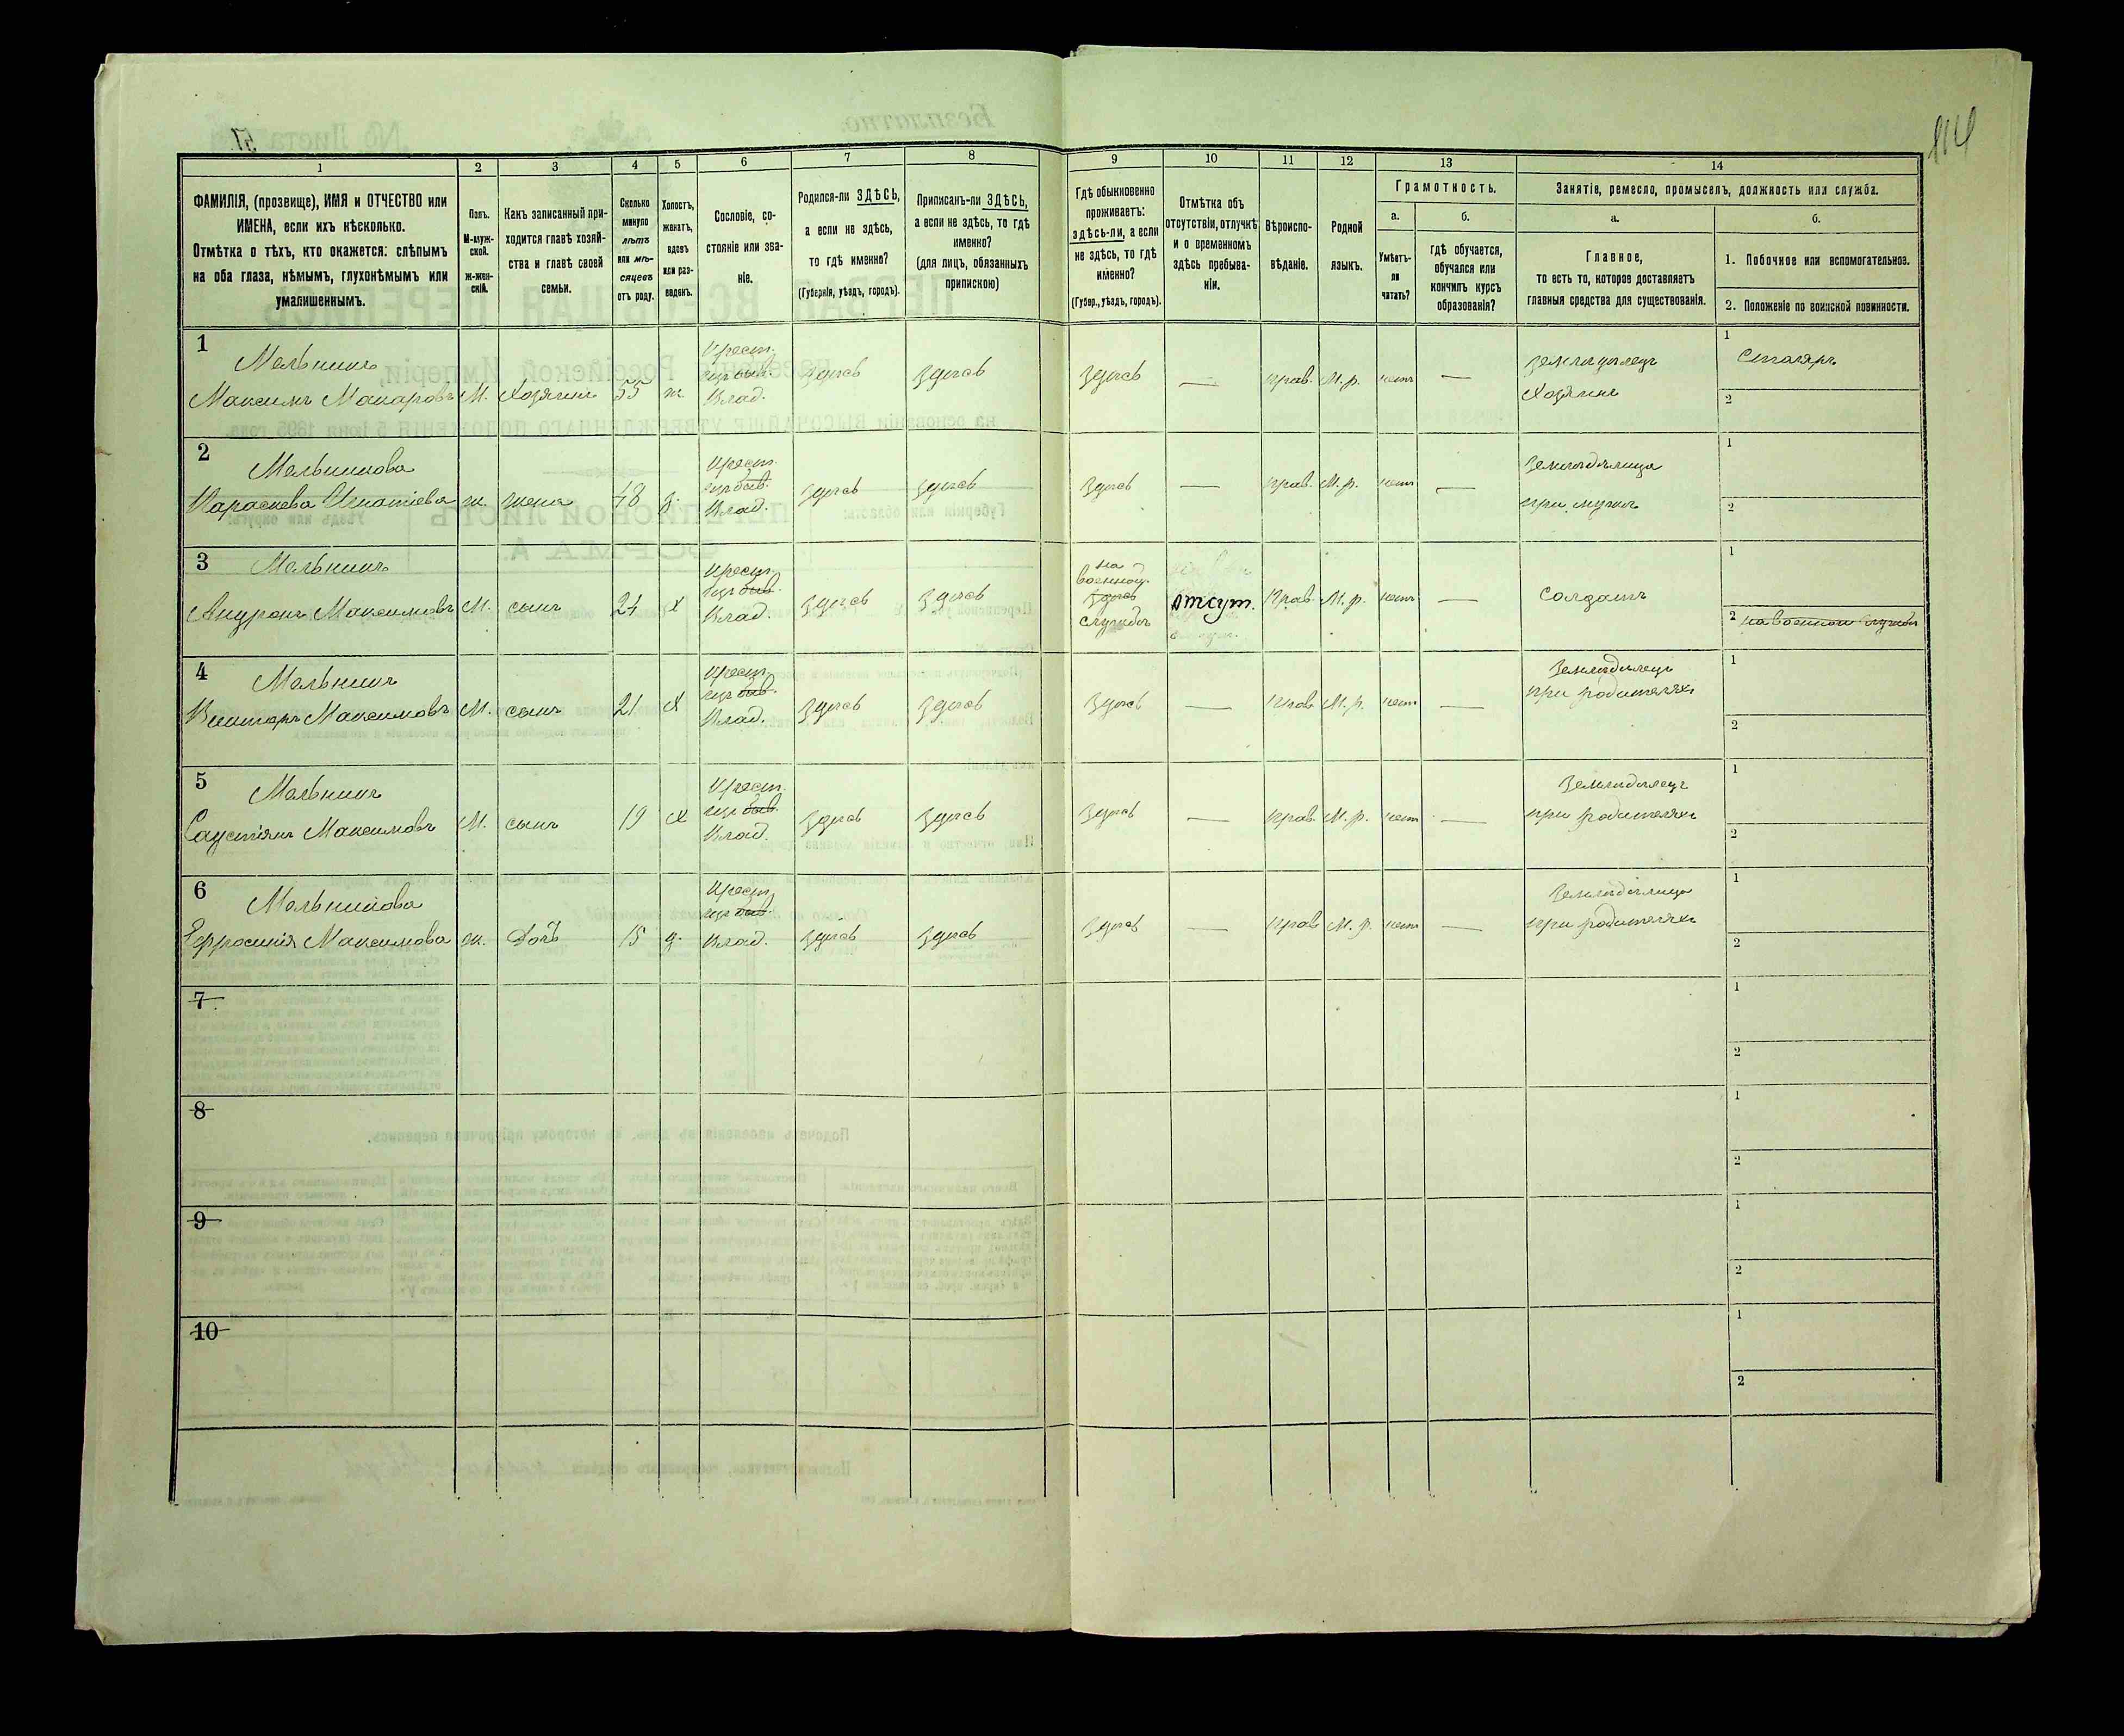 114
1
2
3
4
5
6
7
8
9
10
11
12
13
14
ФАМИЛІЯ, (прозвище), ИМЯ и ОТЧЕСТВО или
ИМЕНА, если ихъ нѣсколько.
Отмѣтка о тѣхъ, кто окажется: слѣпымъ
на оба глаза, нѣмымъ, глухонѣмымъ или
умалишеннымъ.
Полъ.
М-муж-
ской.
Ж-жен-
скій.
Какъ записанный при-
ходится главѣ хозяй-
ства и главѣ своей
семьи.
Сколько
минуло
лѣтъ
или мѣ-
сяцевъ
отъ роду.
Холостъ,
женатъ,
вдовъ
или раз-
веденъ.
Сословіе, со-
стояніе или зва-
ніе.
Родился-ли ЗДѢСЬ,
а если не здѣсь,
то гдѣ именно?
(Губернія, уѣздъ, городъ).
Приписанъ-ли ЗДѢСЬ,
а если не здѣсь, то гдѣ
именно?
(для лицъ, обязанныхъ
припиской)
Гдѣ обыкновенно
проживаетъ:
здѣсь-ли, а если
не здѣсь, то гдѣ
именно?
(Губер., уѣздъ, городъ).
Отмѣтка объ
отсутствіи, отлучкѣ
и о временномъ
здѣсь пребыва-
ніи.
Вѣроиспо-
вѣданіе.
Родной
языкъ.
Грамотность.
а.
б.
Умѣетъ-
ли
читать?
гдѣ обучается,
обучался или
кончилъ курсъ
образованія?
Занятіе, ремесло, промыселъ, должность или служба.
а.
б.
Главное,
то есть то, которое доставляетъ
главныя средства для существованія.
1. Побочное или вспомогательное.
2. Положеніе по воинской повинности.
1
Мельникъ
Максимъ Макаровъ М. Хозяинъ 55 ж.
Крест.
изъ быв.
Влад.
здѣсь здѣсь здѣсь — прав. М. р. нетъ —
земледѣлецъ
Хозяинъ
1 Столяръ
2
2
Мельникова
Параскева Игнатіева ж. жена 48 з.
Крест.
изъ быв.
Влад.
здѣсь здѣсь здѣсь — прав. М. р. нетъ —
Земледѣлица
при мужѣ
1
2
3
Мельникъ
Андронъ Максимовъ М. сынъ 24 х
Крест.
изъ быв.
Влад.
здѣсь здѣсь
на
военной
здѣсь
службѣ
отсут. Прав. М. р. нетъ —
солдатъ
1
2 на военной службѣ
4
Мельникъ
Викторъ Максимовъ М. сынъ 21 х
Крест.
изъ быв.
Влад.
здѣсь здѣсь здѣсь — прав. М. р. нетъ —
Земледѣлецъ
при родителяхъ
1
2
5
Мельникъ
Максимовъ М. сынъ 19 х
Крест.
изъ быв.
Влад.
здѣсь здѣсь здѣсь — прав. М. р. нетъ —
Земледѣлецъ
при родителяхъ
1
2
6
Мельникова
Ефросинія Максимова ж. Дочь 15 д.
Крест.
изъ быв.
Влад.
здѣсь здѣсь здѣсь — прав. М. р. нетъ —
Земледѣлица
при родителяхъ
1
2
7
1
2
8
1
2
9
1
2
10
1
2